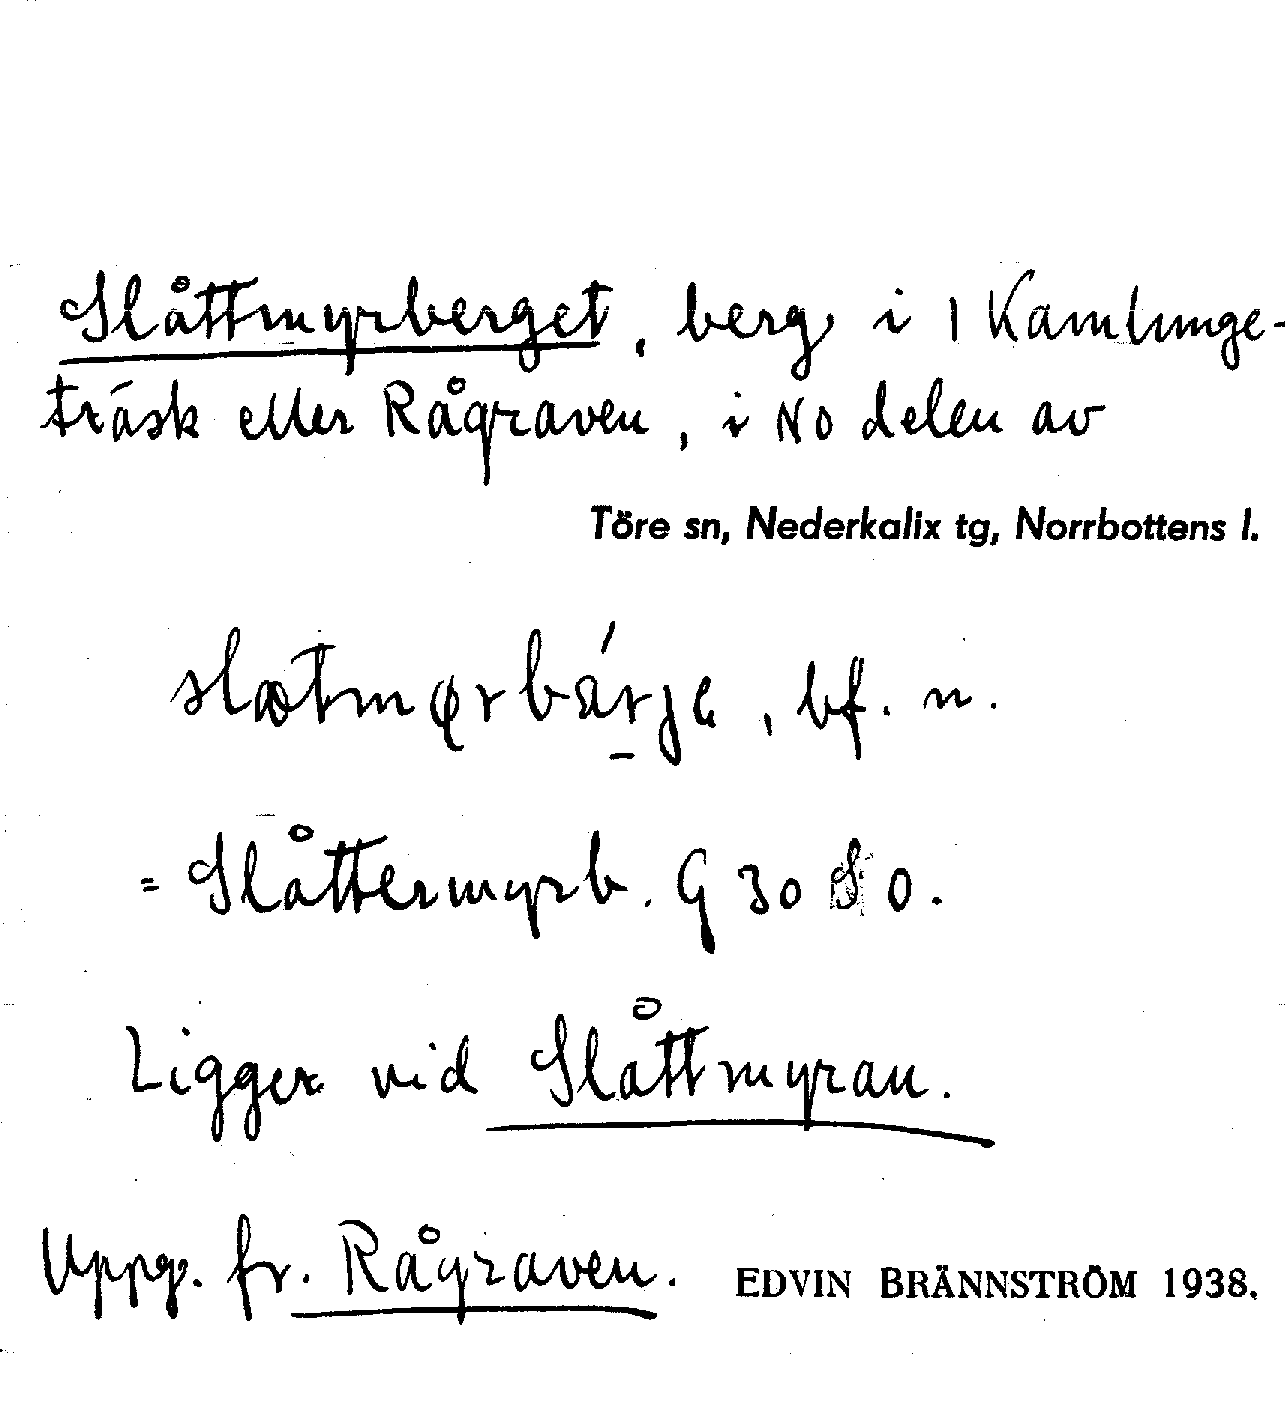 Slåttmyrberget, berg i 1 Kamlunge-
träsk eller Rågraven, i NO delen av
Töre sn, Nederkalix tg, Norrbottens l.
bf. n.
= Slåttermyrb. G 30 SO.
Ligger vid Slåttmyran.
Uppg. fr. Rågraven. EDVIN BRÄNNSTRÖM 1938.